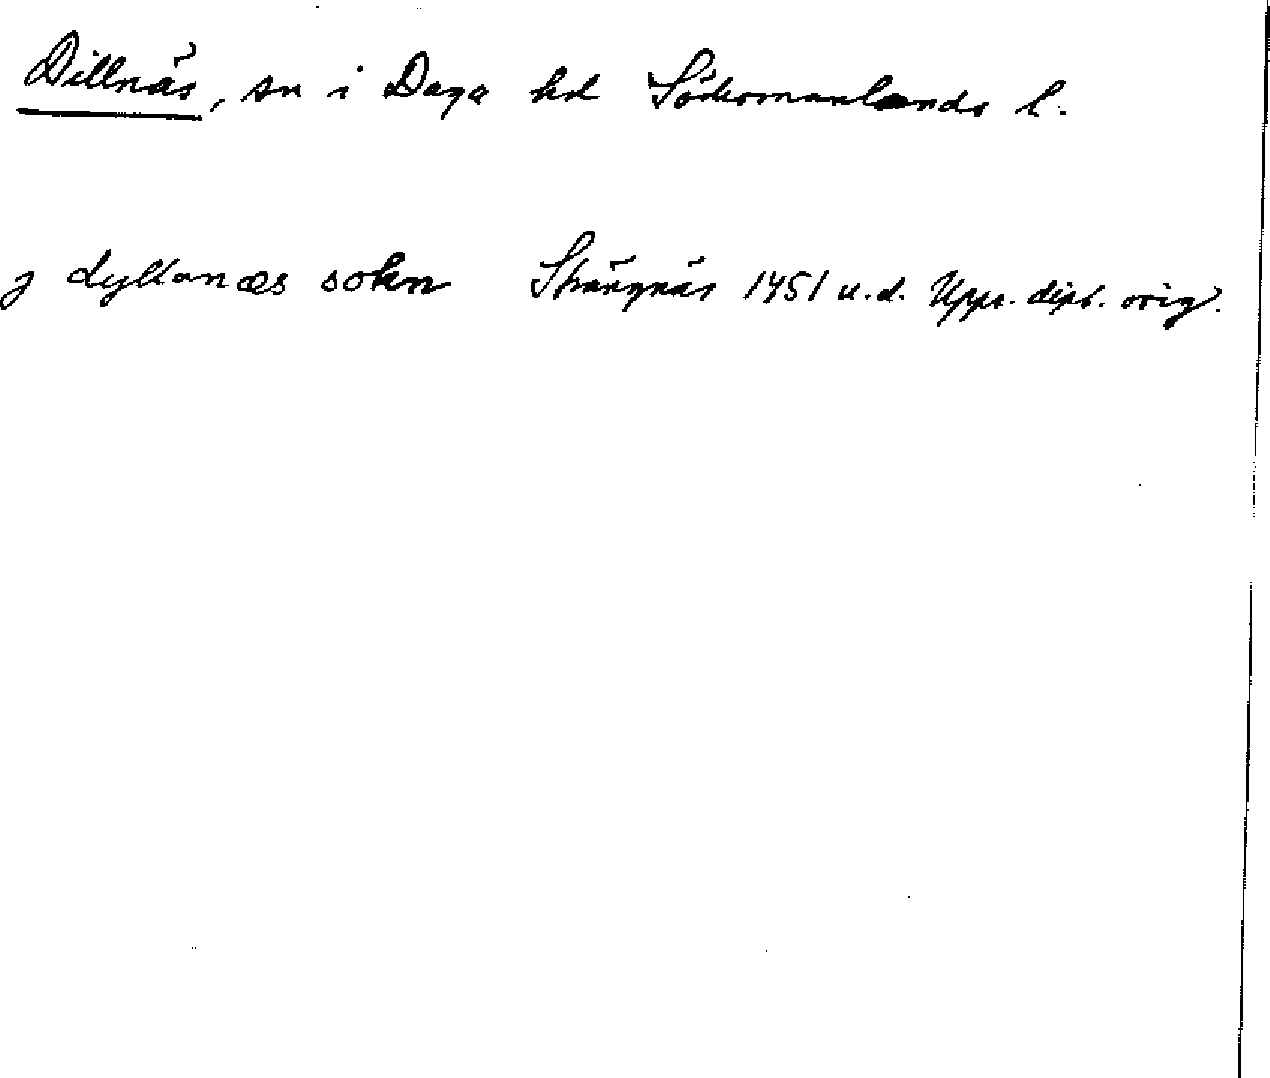 Dillnäs, sn i Daga hd Södermanlands l.
j dyllanæs sokn Strängnäs 1451 u.d. Upps. dipl. orig.